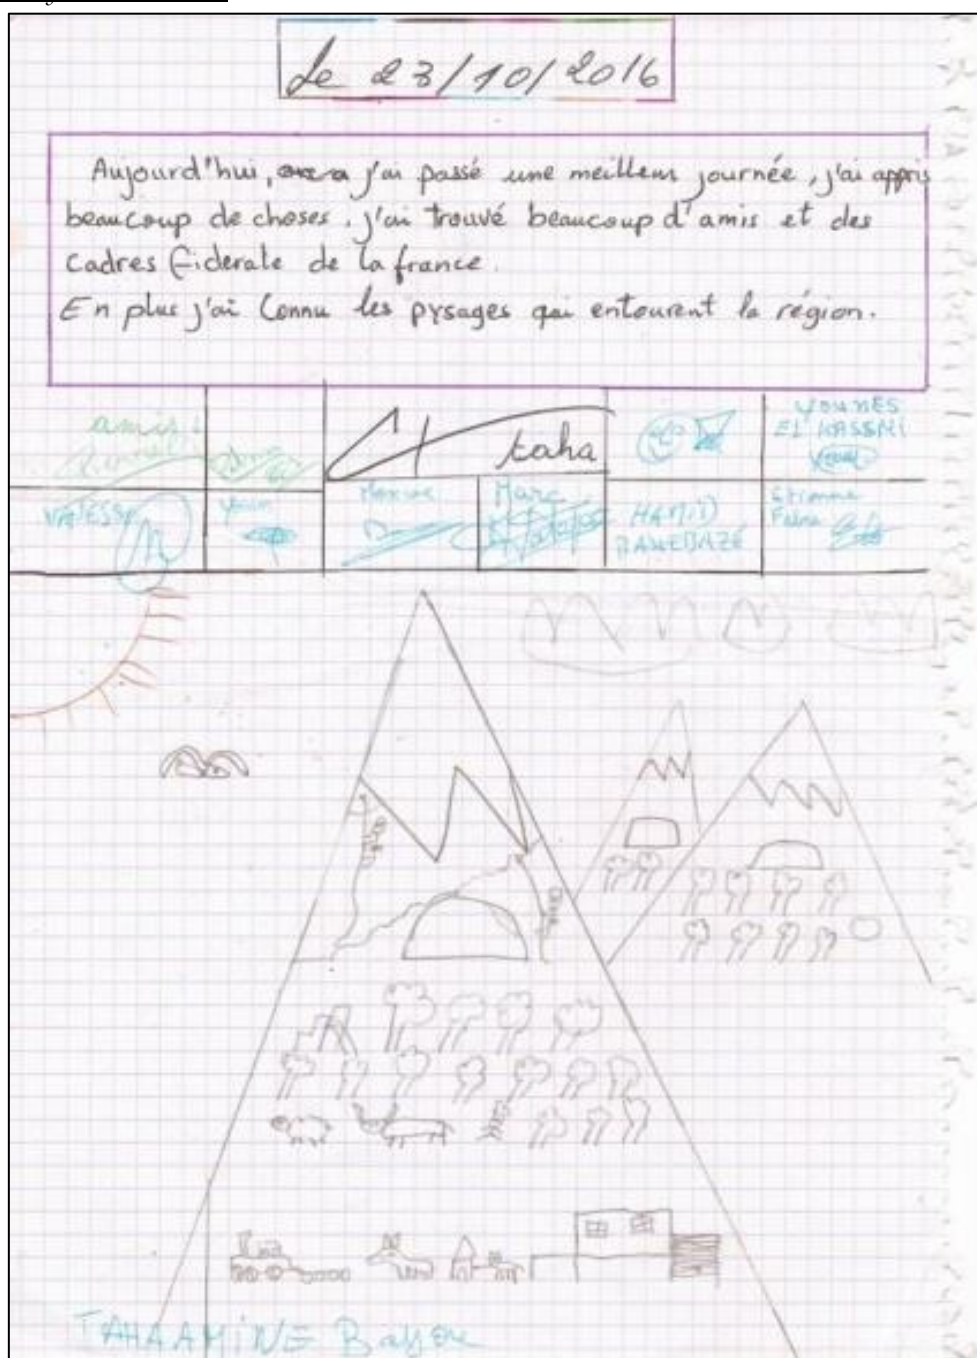 Le 23/10/2016
Aujourd'hui, j'ai passé une meilleur journée, j'ai appris
beaucoup de choses. j'ai trouvé beaucoup d'amis et des
cadres fiderale de la france.
En plus j'ai connu les pysages qui entourent la région.
amis
taha
YOUNES
EL KASSMI
VANESSA
Maxime
Marc
HAMID
Etienne
TAHA AMINE